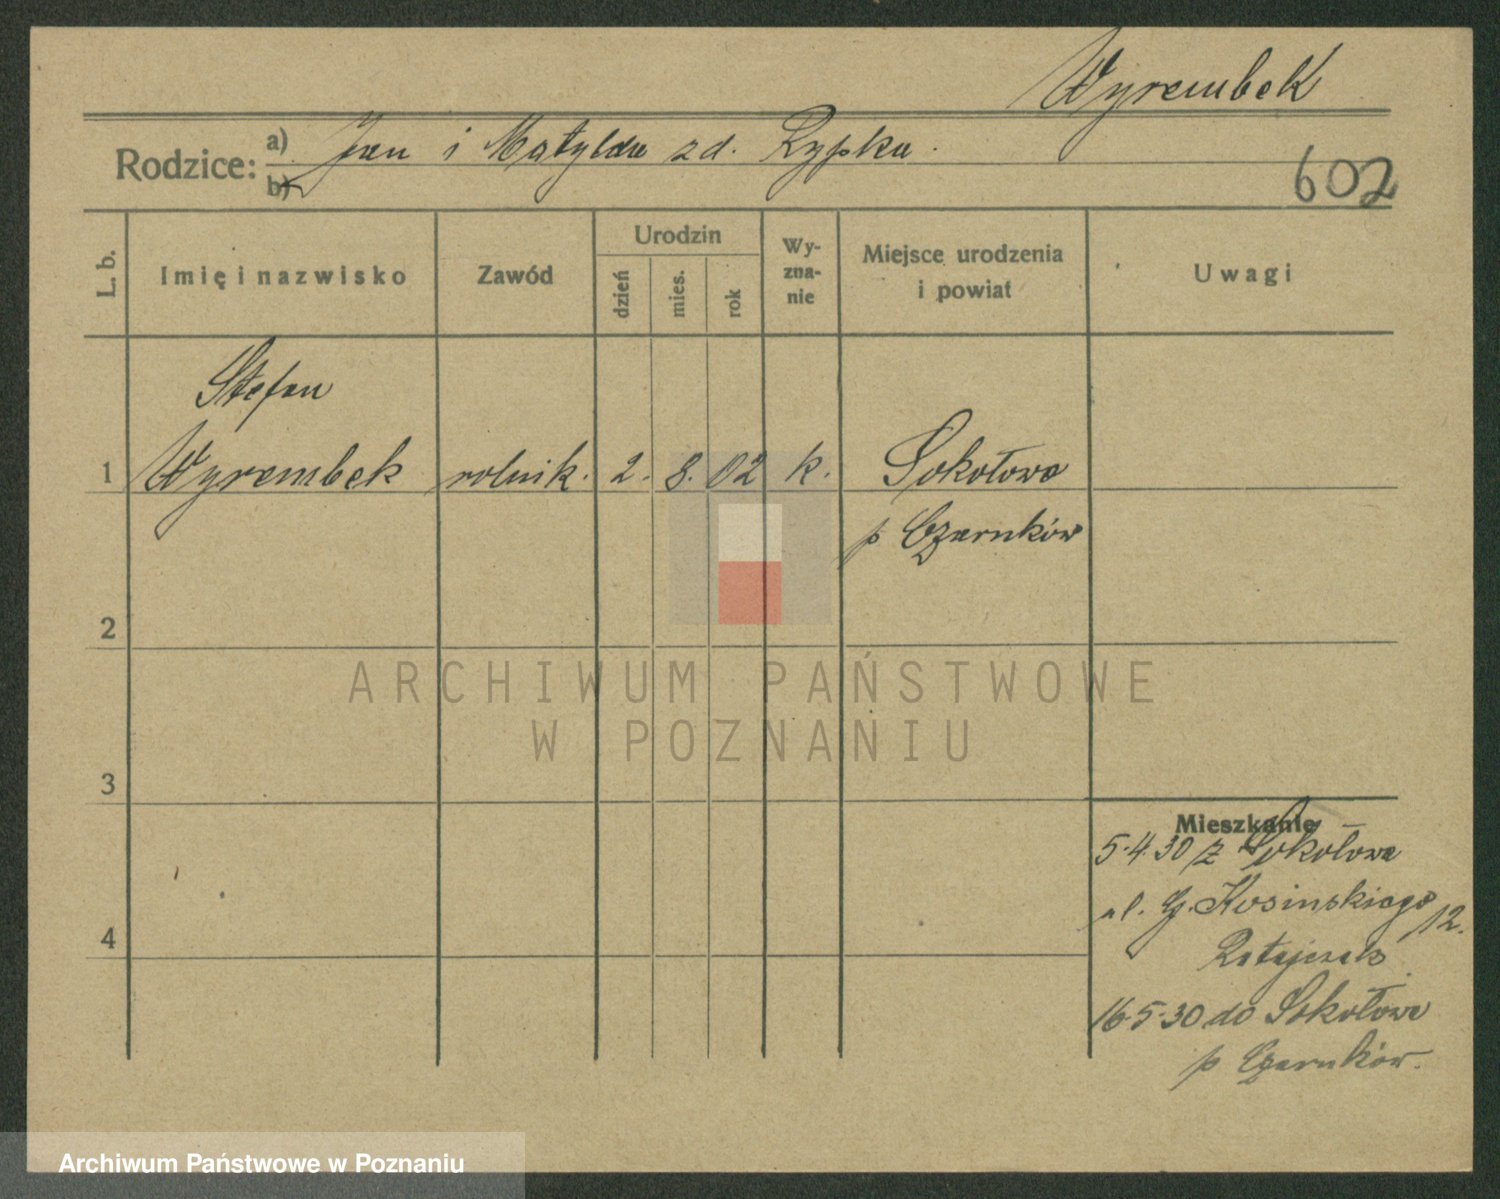 Wyrembek
Rodzice: a) Jan i Matylda zd. Rypka.
b)
602
L. b.
Imię i nazwisko
Zawód
Urodzin
dzień
mies.
rok
Wy-
zna-
nie
Miejsce urodzenia
i powiat
Uwagi
Stefan
1 Wyrembek rolnik. 2. 8. 02 k. Sokołowo
p Czarnków
2
3
4
Mieszkanie
5.4.30 z Sokołowa
ul. G. Kosinskiego 12.
Ratajczak
16.5.30 do Sokołowa
p Czarnków.
ARCHIWUM PAŃSTWOWE
W POZNANIU
Archiwum Państwowe w Poznaniu